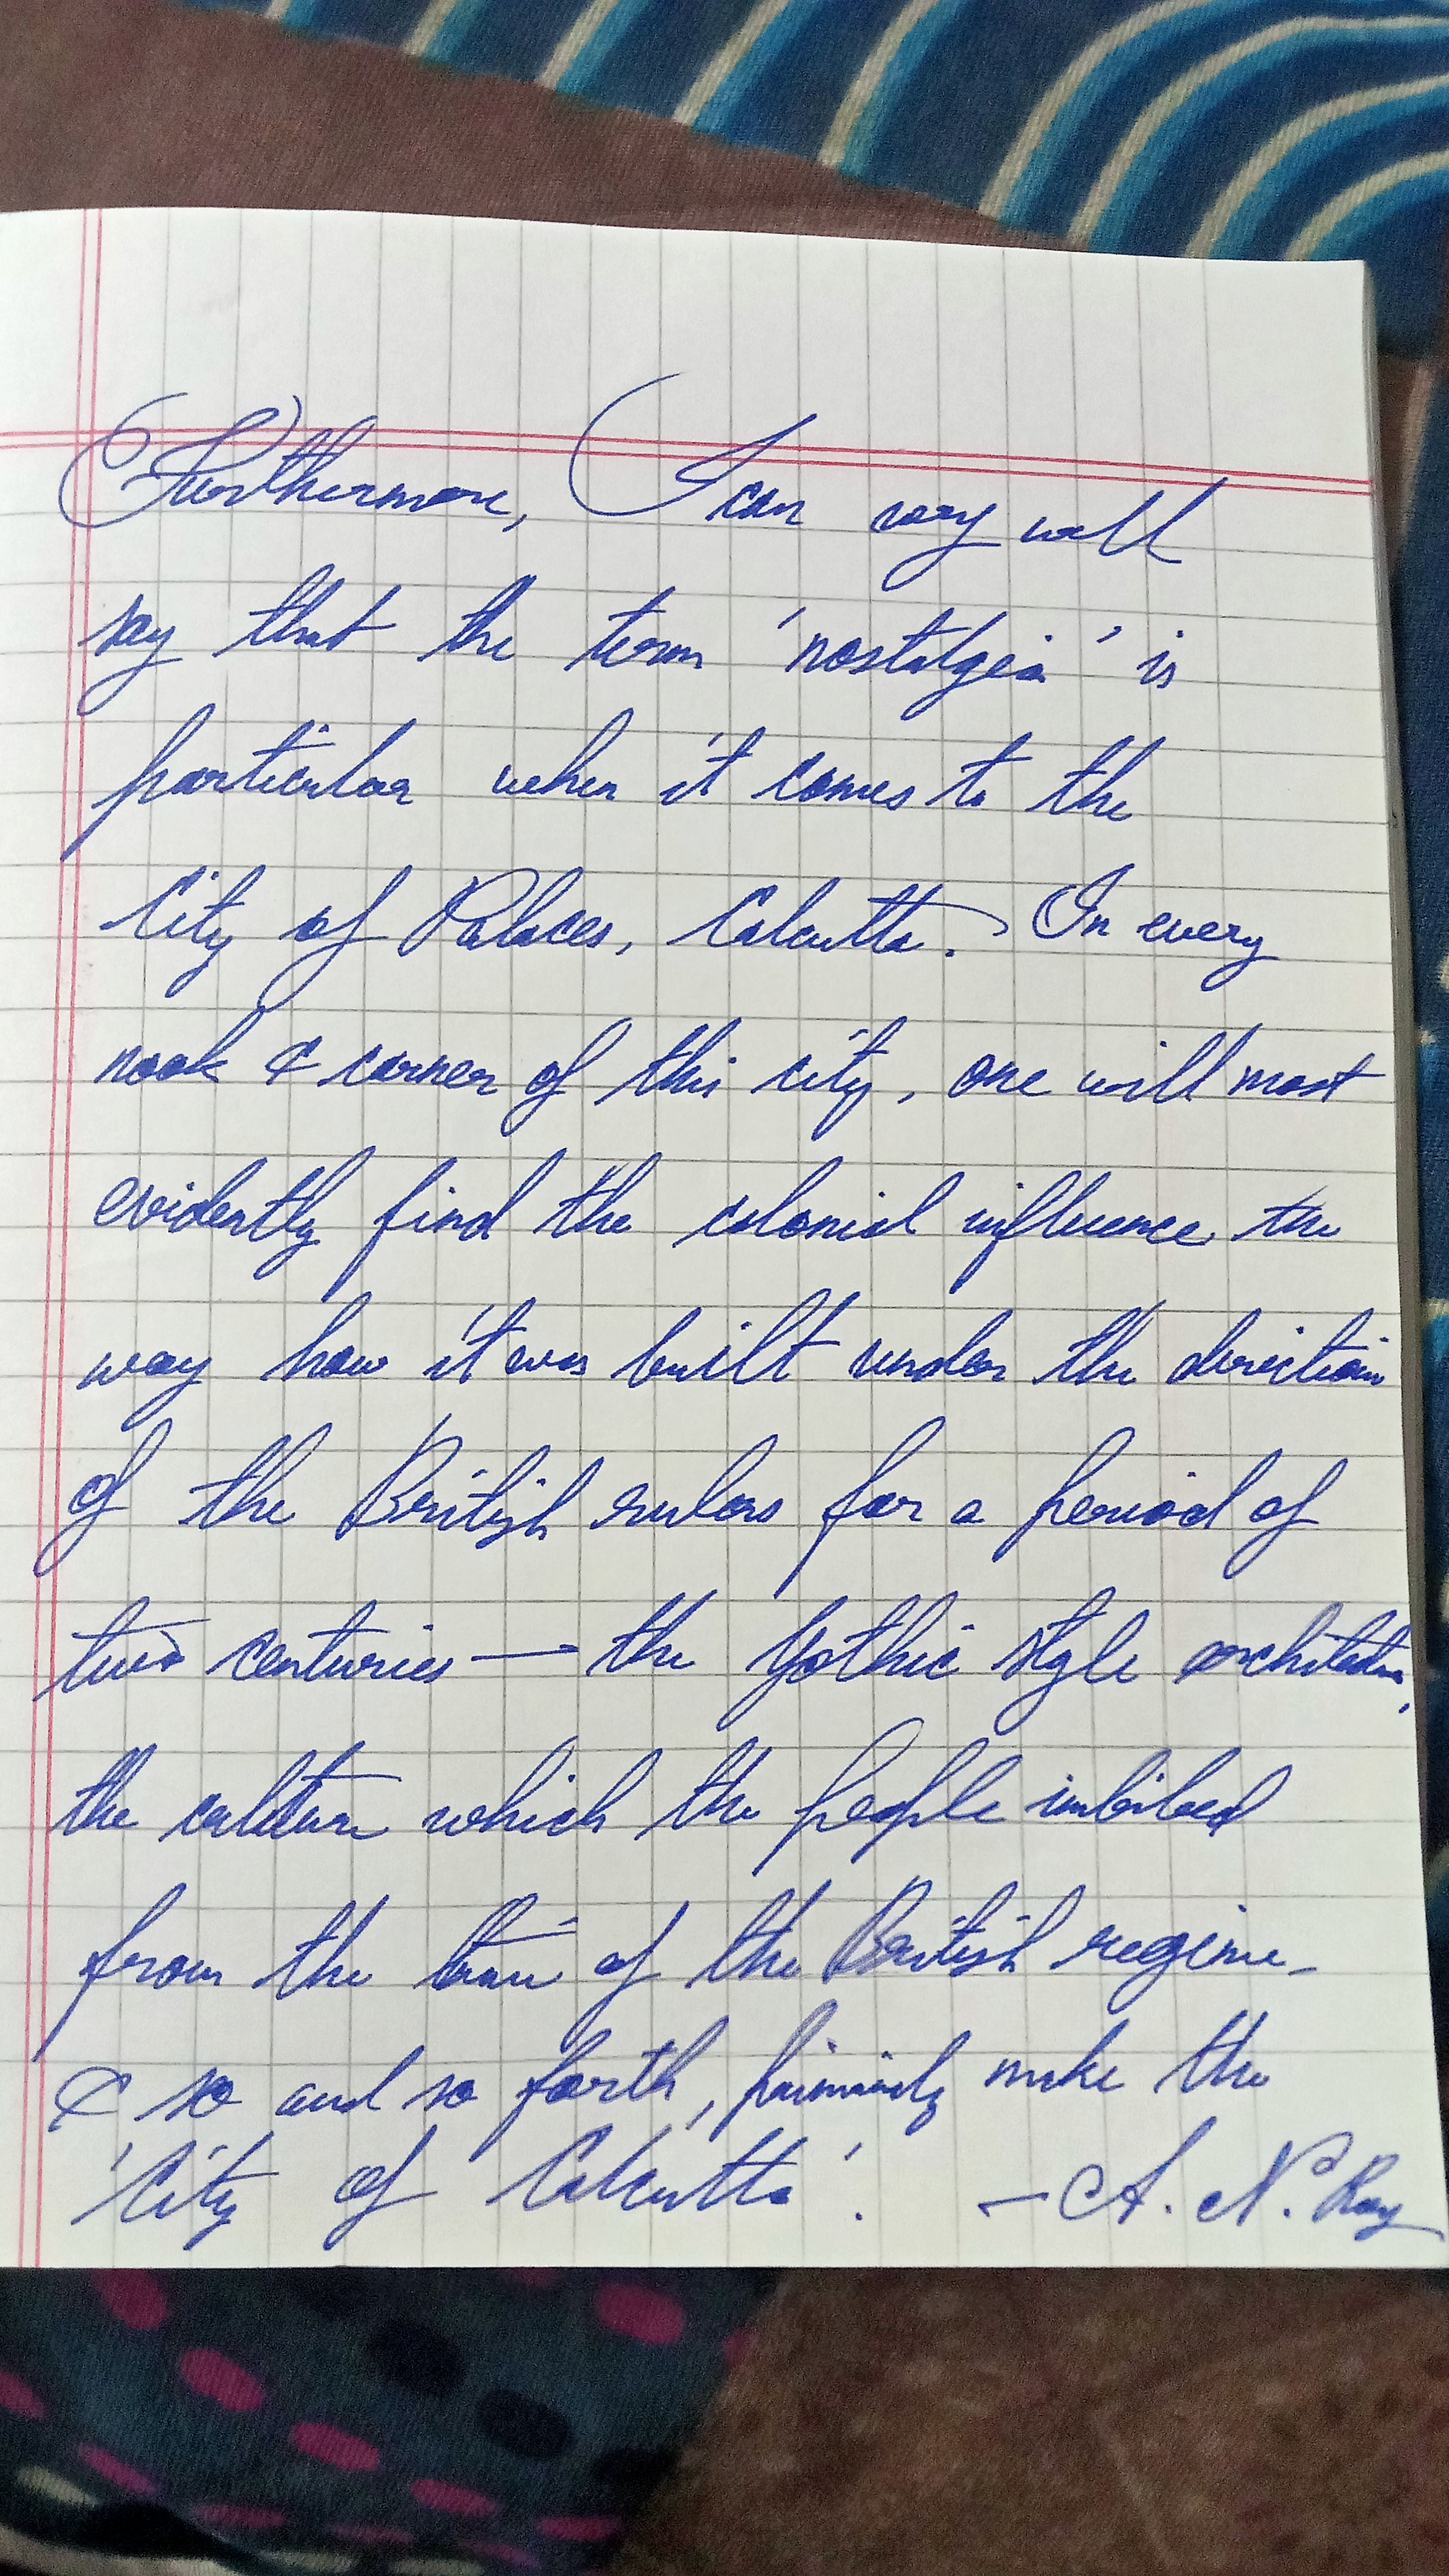 Furthermore, I can very well
say that the term 'nostalgia' is
particular when it comes to the
City of Palaces, Calcutta. In every
nook & corner of this city, one will most
evidently find the colonial influence the
way how it was built under the direction
of the British rulers for a period of
two centuries — the Gothic style architecture,
the culture which the people imbibed
from the time of the British regime -
& so and so forth, primarily make the
'City of Calcutta'. - A. N. Ray